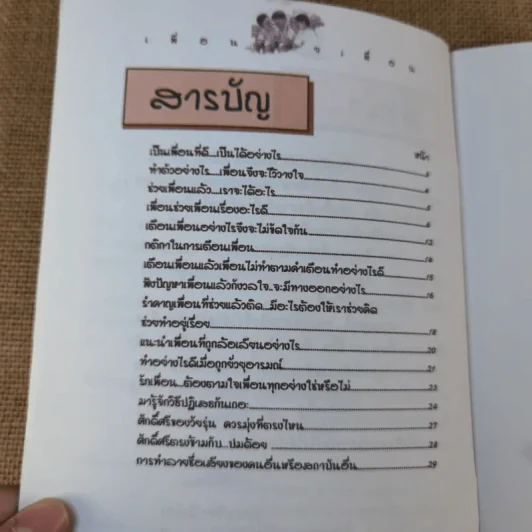 เพื่อน จ เพื่อน
สารบัญ
หน้า
เป็นเพื่อนที่ดี...เป็นได้อย่างไร 3
ทำตัวอย่างไร...เพื่อนจึงจะไว้วางใจ 4
ช่วยเพื่อนแล้ว...เราจะได้อะไร 5
เพื่อนช่วยเพื่อนเรื่องอะไรดี 6
เตือนเพื่อนอย่างไรจึงจะไม่ขัดใจกัน 12
กติกาในการเตือนเพื่อน 14
เตือนเพื่อนแล้วเพื่อนไม่ทำตามคำเตือนทำอย่างไรดี 15
ฟังปัญหาเพื่อนแล้วกังวลใจ...จะมีทางออกอย่างไร 16
รำคาญเพื่อนที่ช่วยแล้วติด...มีอะไรต้องให้เราช่วยคิด
ช่วยทำอยู่เรื่อย 18
แนะนำเพื่อนที่ถูกล้อเลียนอย่างไร 20
ทำอย่างไรดีเมื่อถูกยั่วยุอารมณ์ 21
รักเพื่อน...ต้องตามใจเพื่อนทุกอย่างใช่หรือไม่ 23
มารู้จักวิธีปฏิเสธกันเถอะ 24
ศักดิ์ศรีของวัยรุ่น ควรมุ่งที่ตรงไหน 27
ศักดิ์ศรีตรงข้ามกับ...ปมด้อย 28
การทำลายชื่อเสียงของคนอื่นหรือสถาบันอื่น 29